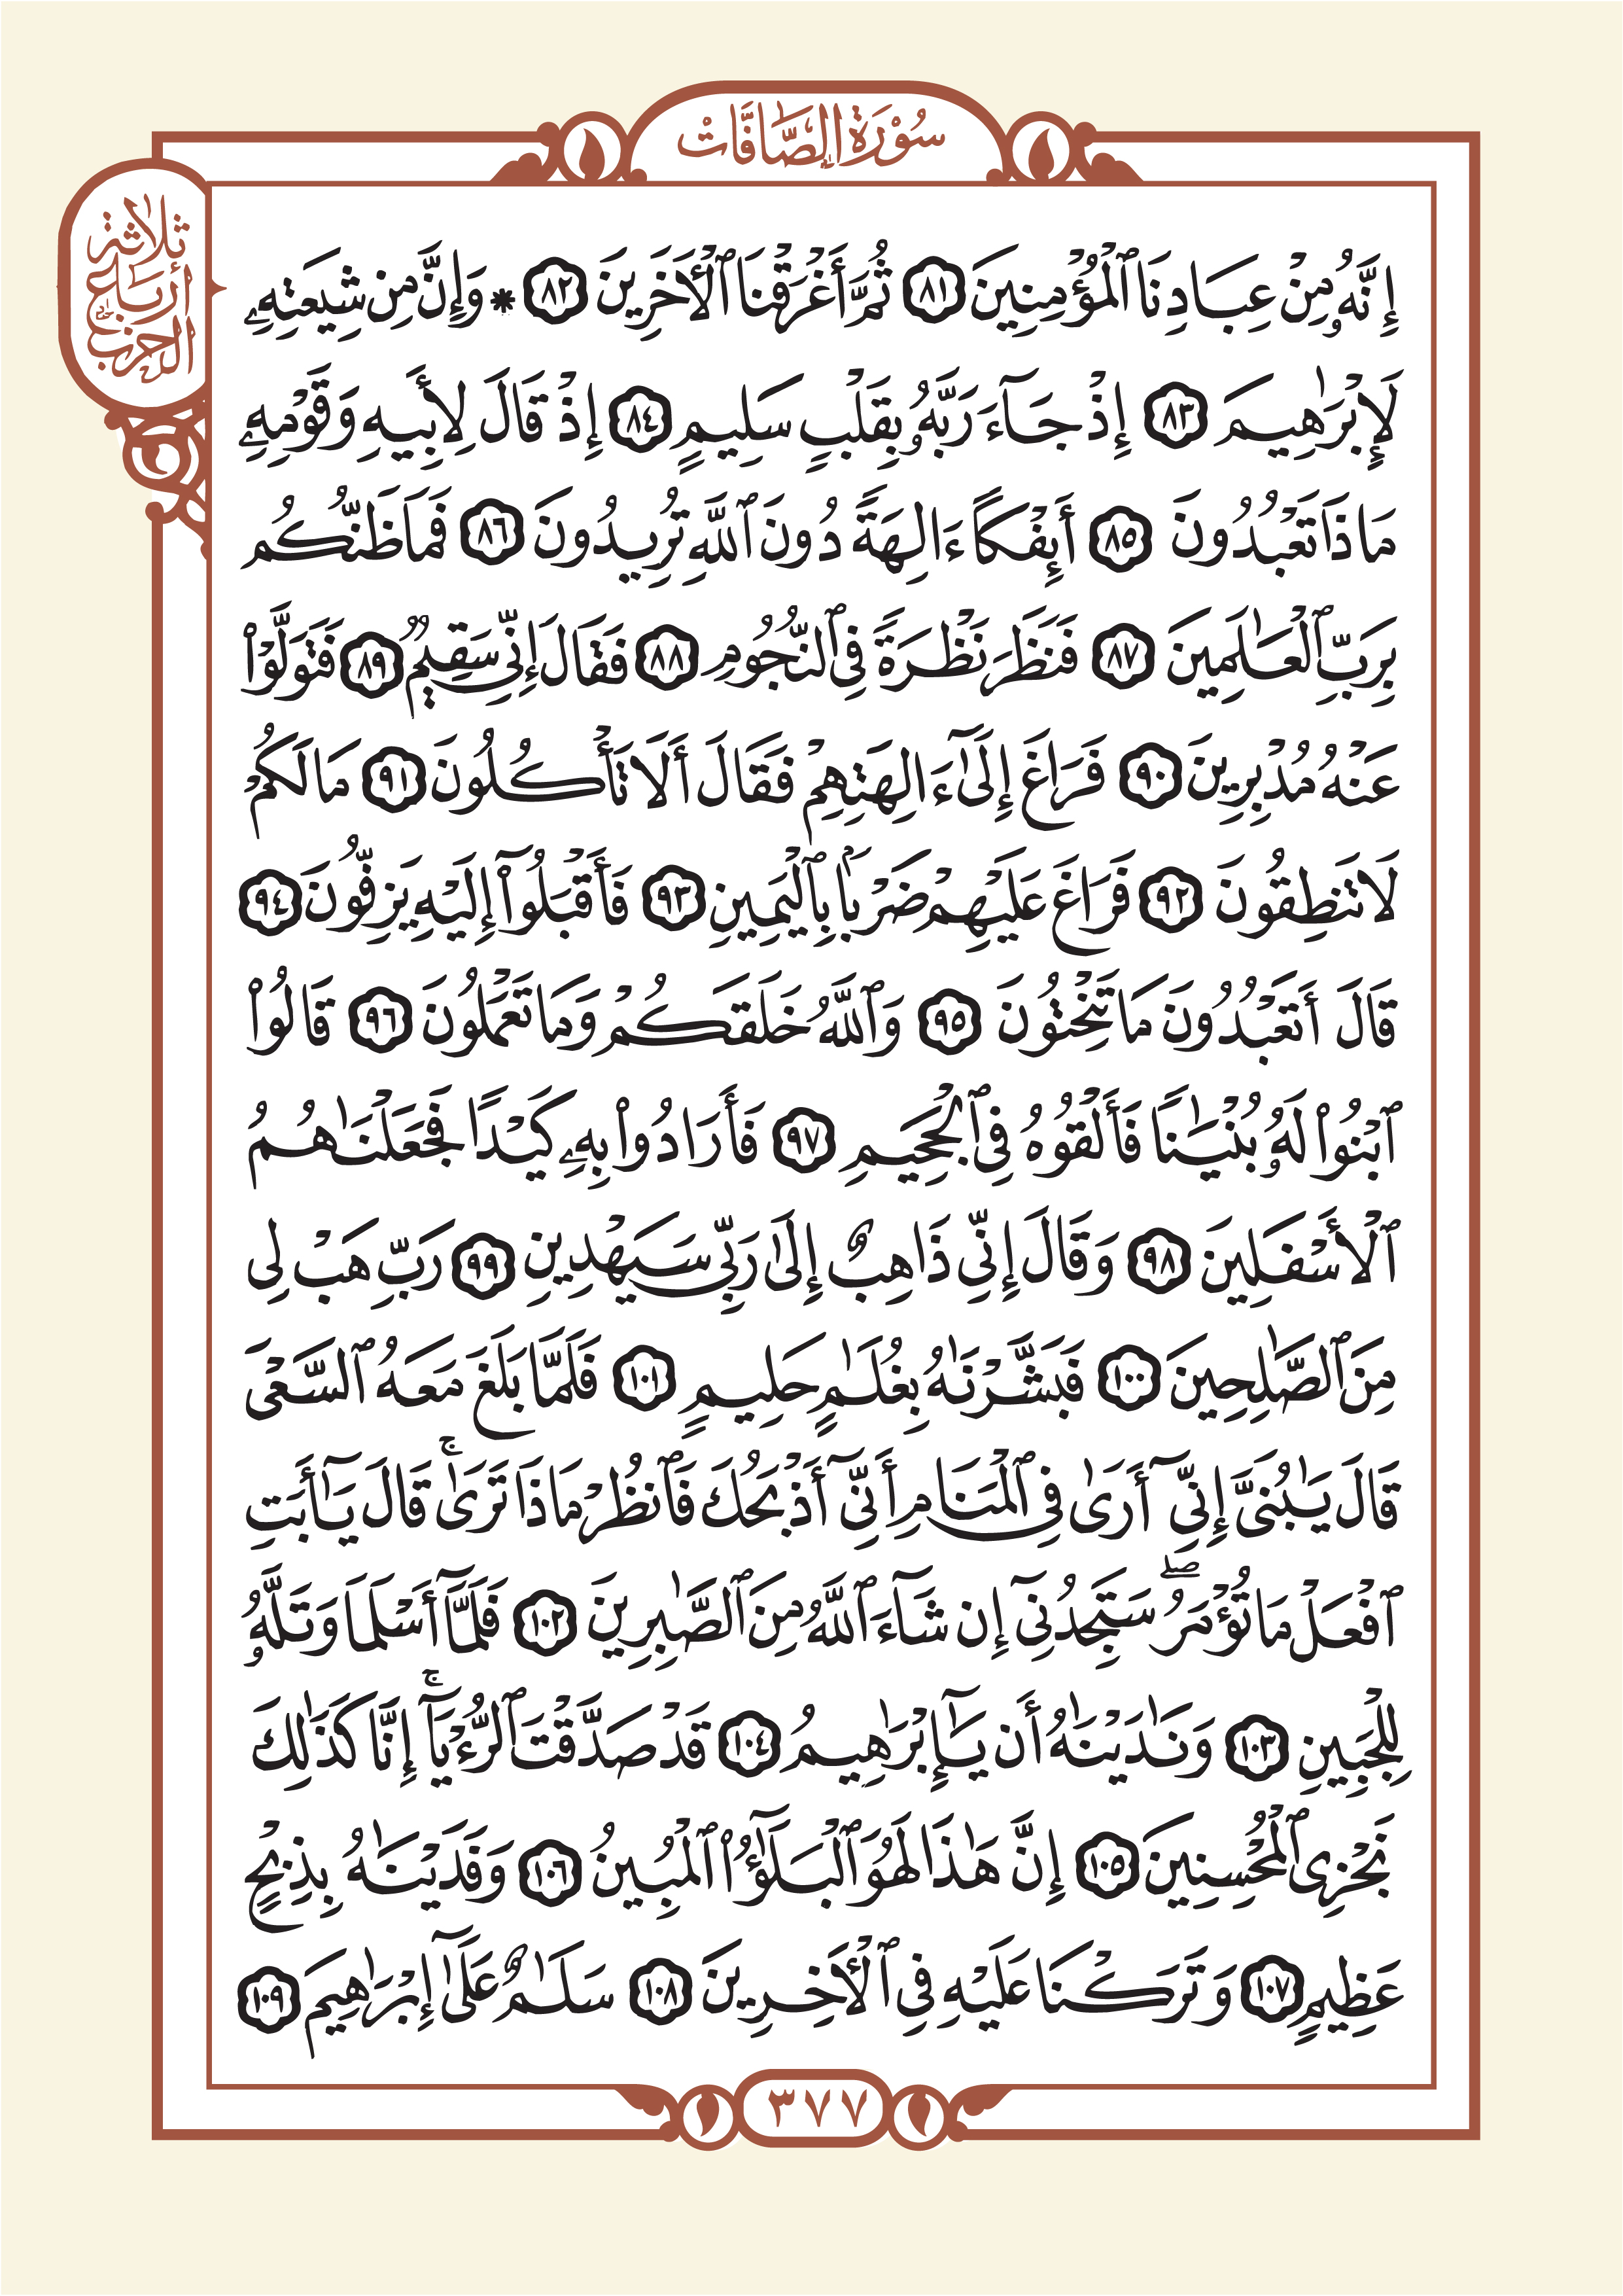 سُورَةُ الصَّافَّات
ثلاثة
أرباع
الحزب
إِنَّهُۥ مِنْ عِبَادِنَا ٱلْمُؤْمِنِينَ ٨١ ثُمَّ أَغْرَقْنَا ٱلْأَخَرِينَ ٨٢ * وَإِنَّ مِن شِيعَتِهِۦ
لَإِبْرَٰهِيمَ ٨٣ إِذْ جَآءَ رَبَّهُۥ بِقَلْبٍ سَلِيمٍ ٨٤ إِذْ قَالَ لِأَبِيهِ وَقَوْمِهِۦ
مَاذَا تَعْبُدُونَ ٨٥ أَئِفْكًا ءَالِهَةً دُونَ ٱللَّهِ تُرِيدُونَ ٨٦ فَمَا ظَنُّكُم
بِرَبِّ ٱلْعَٰلَمِينَ ٨٧ فَنَظَرَ نَظْرَةً فِى ٱلنُّجُومِ ٨٨ فَقَالَ إِنِّى سَقِيمٌ ٨٩ فَتَوَلَّوْا۟
عَنْهُ مُدْبِرِينَ ٩٠ فَرَاغَ إِلَىٰٓ ءَالِهَتِهِمْ فَقَالَ أَلَا تَأْكُلُونَ ٩١ مَا لَكُمْ
لَا تَنطِقُونَ ٩٢ فَرَاغَ عَلَيْهِمْ ضَرْبًۢا بِٱلْيَمِينِ ٩٣ فَأَقْبَلُوٓا۟ إِلَيْهِ يَزِفُّونَ ٩٤
قَالَ أَتَعْبُدُونَ مَا تَنْحِتُونَ ٩٥ وَٱللَّهُ خَلَقَكُمْ وَمَا تَعْمَلُونَ ٩٦ قَالُوا۟
ٱبْنُوا۟ لَهُۥ بُنْيَٰنًا فَأَلْقُوهُ فِى ٱلْجَحِيمِ ٩٧ فَأَرَادُوا۟ بِهِۦ كَيْدًا فَجَعَلْنَٰهُمُ
ٱلْأَسْفَلِينَ ٩٨ وَقَالَ إِنِّى ذَاهِبٌ إِلَىٰ رَبِّى سَيَهْدِينِ ٩٩ رَبِّ هَبْ لِى
مِنَ ٱلصَّٰلِحِينَ ١٠٠ فَبَشَّرْنَٰهُ بِغُلَٰمٍ حَلِيمٍ ١٠١ فَلَمَّا بَلَغَ مَعَهُ ٱلسَّعْىَ
قَالَ يَٰبُنَىَّ إِنِّىٓ أَرَىٰ فِى ٱلْمَنَامِ أَنِّىٓ أَذْبَحُكَ فَٱنظُرْ مَاذَا تَرَىٰ ۚ قَالَ يَٰٓأَبَتِ
ٱفْعَلْ مَا تُؤْمَرُ ۖ سَتَجِدُنِىٓ إِن شَآءَ ٱللَّهُ مِنَ ٱلصَّٰبِرِينَ ١٠٢ فَلَمَّآ أَسْلَمَا وَتَلَّهُۥ
لِلْجَبِينِ ١٠٣ وَنَٰدَيْنَٰهُ أَن يَٰٓإِبْرَٰهِيمُ ١٠٤ قَدْ صَدَّقْتَ ٱلرُّءْيَآ ۚ إِنَّا كَذَٰلِكَ
نَجْزِى ٱلْمُحْسِنِينَ ١٠٥ إِنَّ هَٰذَا لَهُوَ ٱلْبَلَٰٓؤُا۟ ٱلْمُبِينُ ١٠٦ وَفَدَيْنَٰهُ بِذِبْحٍ
عَظِيمٍ ١٠٧ وَتَرَكْنَا عَلَيْهِ فِى ٱلْأَخِرِينَ ١٠٨ سَلَٰمٌ عَلَىٰٓ إِبْرَٰهِيمَ ١٠٩
٣٧٧